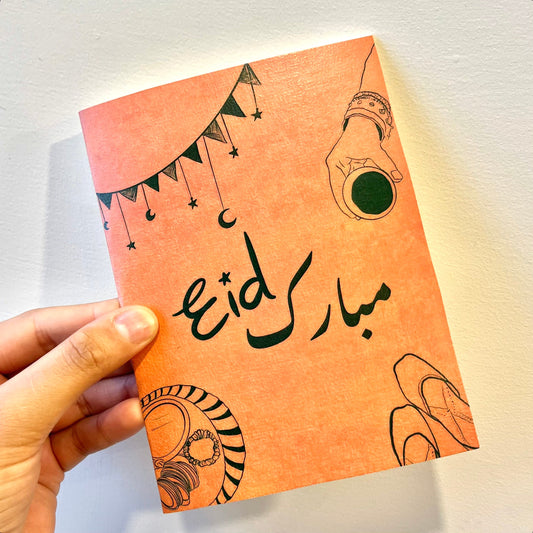 Eid مبارک